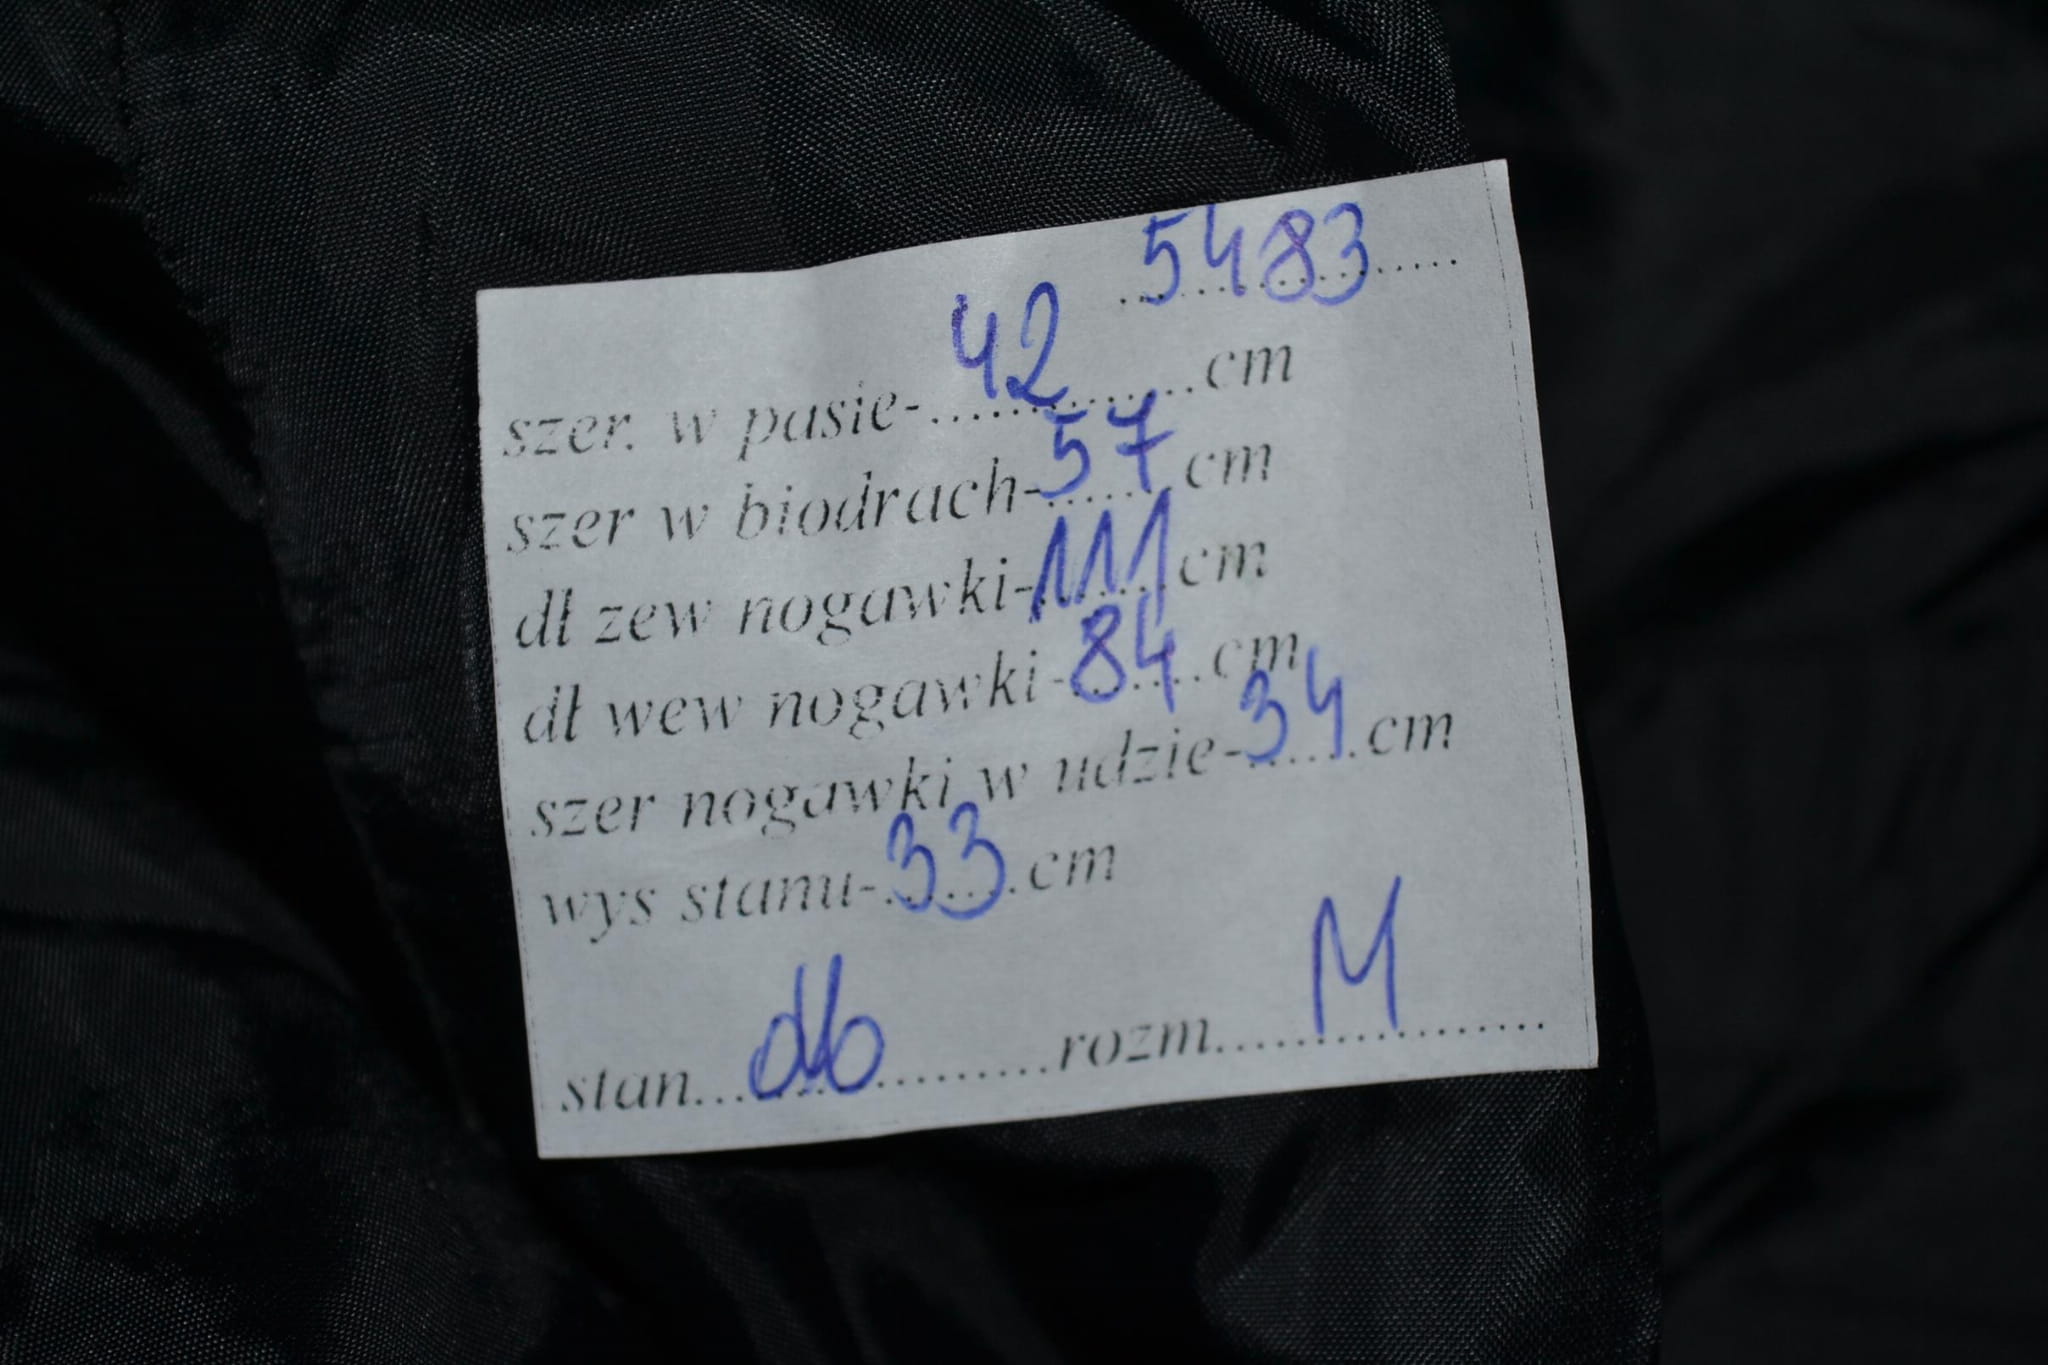 5483
szer. w pasie-42..........cm
szer w biodrach-57.......cm
dł zew nogawki-111.......cm
dł wew nogawki-84.......cm
szer nogawki w udzie-34......cm
wys stanu-33......cm
stan...db..........rozm...M..............